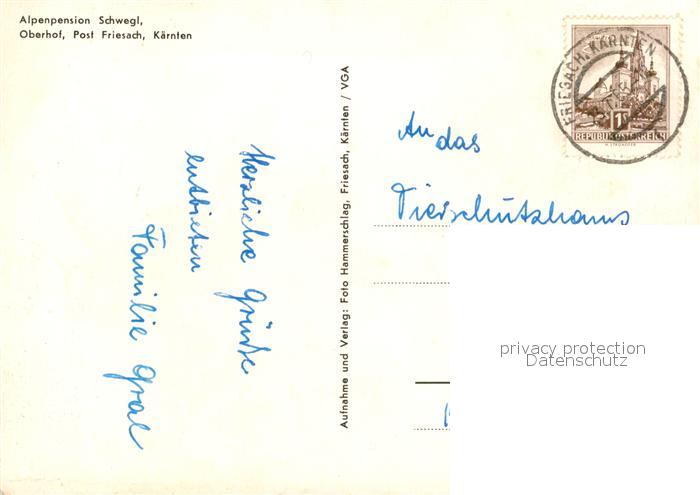 Alpenpension Schwegl,
Oberhof, Post Friesach, Kärnten
Herzliche Grüße
entbieten
Familie Gral
Aufnahme und Verlag: Foto Hammerschlag, Friesach, Kärnten / VGA
FRIESACH, KÄRNTEN
1S
REPUBLIK ÖSTERREICH
An das
Tierschutzhaus
privacy protection
Datenschutz